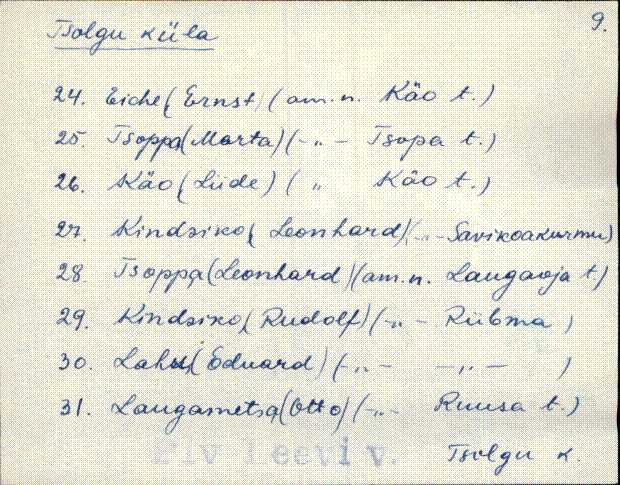 9.
Tsolgu küla
24. Eiche (Ernst) (am.n. Käo t.)
25. Tsoppa (Marta) (-„- Tsopa t.)
26. Käo (Liide) ( „ Käo t.)
27. Kindsiko (Leonhard) (-„- Savikoakurmu)
28. Tsoppa (Leonhard) (am.n. Laugaoja t.)
29. Kindsiko (Rudolf) (-„- Rübma )
30. Lahu (Eduard) (-„- -„- )
31. Laugametsa (Otto) (-„- Ruusa t.)
Leevi v.
Tsolgu k.